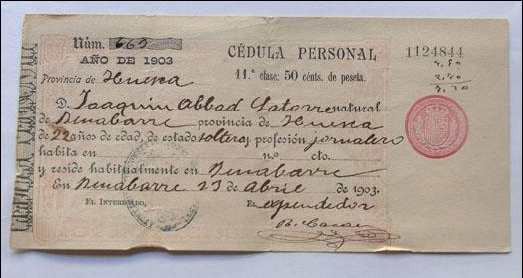 Núm. 663
AÑO DE 1903
CÉDULA PERSONAL
11.ª clase: 50 cénts. de peseta.
1124844
Provincia de Huesca
D. Joaquin Abbad Latorre natural
de Benabarre provincia de Huesca
de 22 años de edad, de estado soltero y profesión jornalero
habita en n.º cto.
y reside habitualmente en Benabarre
En Benabarre 23 de Abril de 1903.
EL INTERESADO,
El expendedor